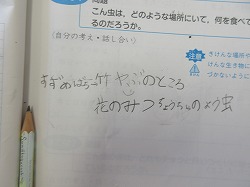 問題
こん虫は、どのような場所にいて、何を食べて
るのだろうか。
（自分の考え・話し合い）
注意
きけんな場所や
けんな生き物に
づかないように
すずめばち→竹やぶのところ
花のみつちょうちょのよう虫